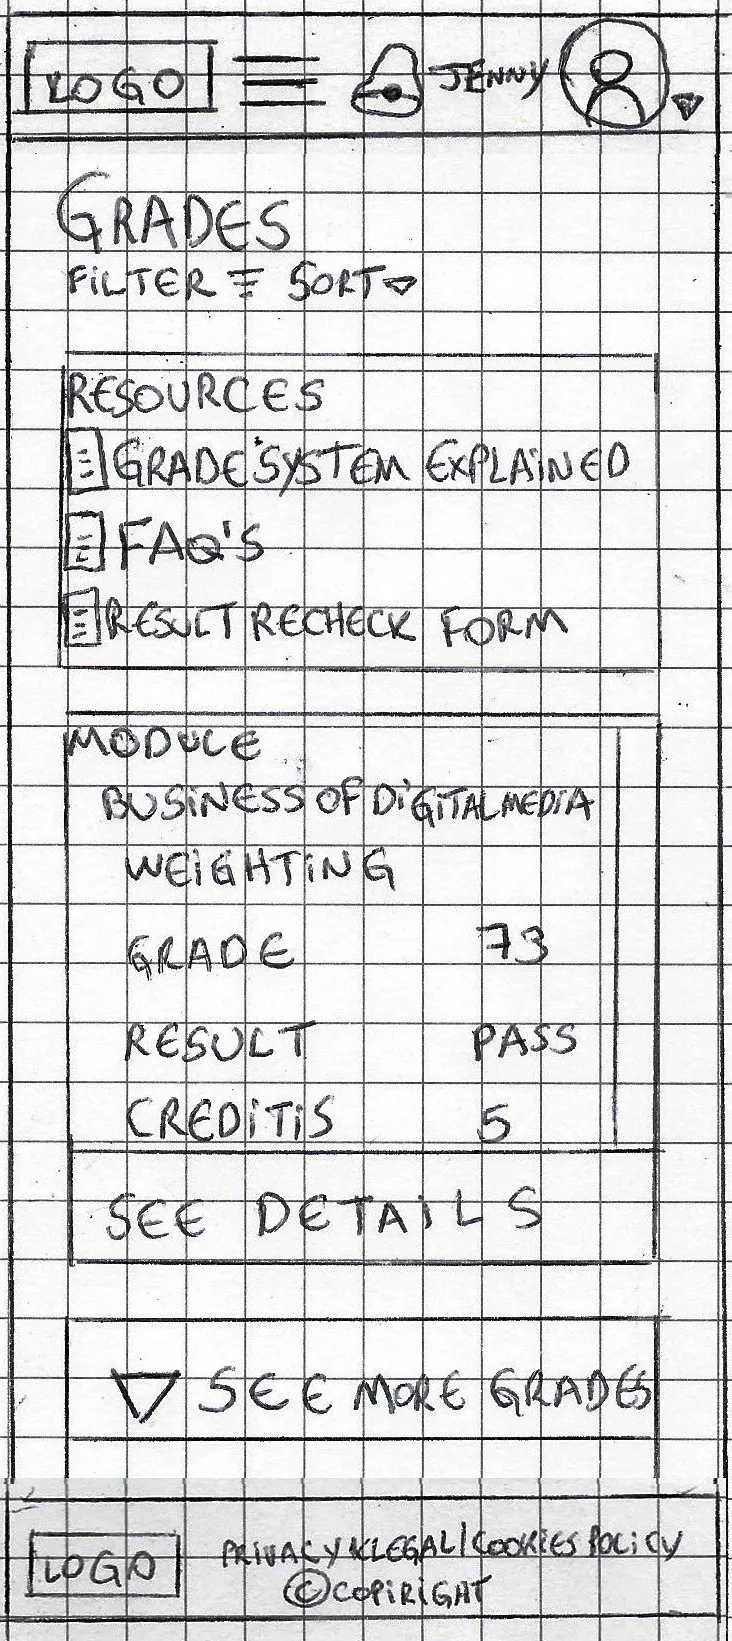 LOGO JENNY
GRADES
FILTER SORT
RESOURCES
GRADE SYSTEM EXPLAINED
FAQ'S
RESULT RECHECK FORM
MODULE
BUSINESS OF DIGITAL MEDIA
WEIGHTING
GRADE 73
RESULT PASS
CREDITIS 5
SEE DETAILS
SEE MORE GRADES
LOGO PRIVACY & LEGAL | COOKIES POLICY
© COPIRIGHT